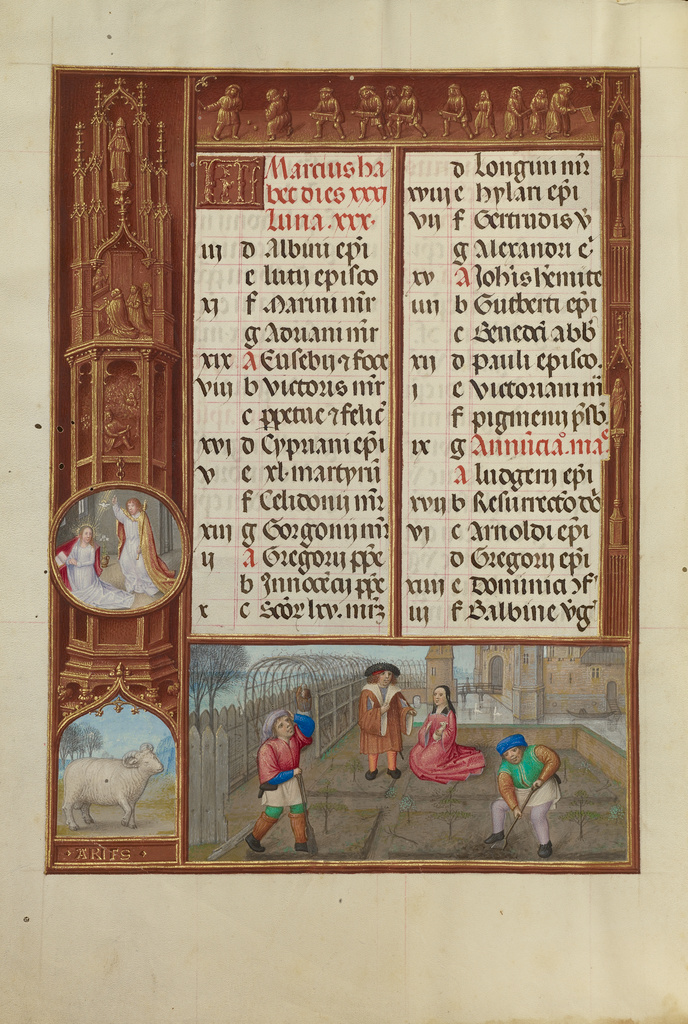 KL Marcius ha
bet dies xxxi
Luna .xxx.
iii d Albini epi
e lutii episco
xi f Marini mr
g Adriani mr
xix A Eusebii ⁊ foce
viii b victoris mr
c ppetue ⁊ felic
xvi d Cypriani epi
v e xl. martyrū
f Celidonii mr
xiii g Gorgonii mr
ii A Gregorii ppe
b Innocēcii ppe
x c Scōr lxv. mrz
d Longini mr
xviii e hylari epi
vii f Gertrudis v
g Alexandri c
xv A Johis hemite
iiii b Gutberti epi
c Benedci abb
xii d pauli episco.
i e victoriani m
f pigmenii psb.
ix g Annūcia. ma
A ludgerii epi
xvii b Resurrecto do
vi c Arnoldi epi
d Gregorii epi
xiiii e dominici f
iii f Balbine vg
ARIES